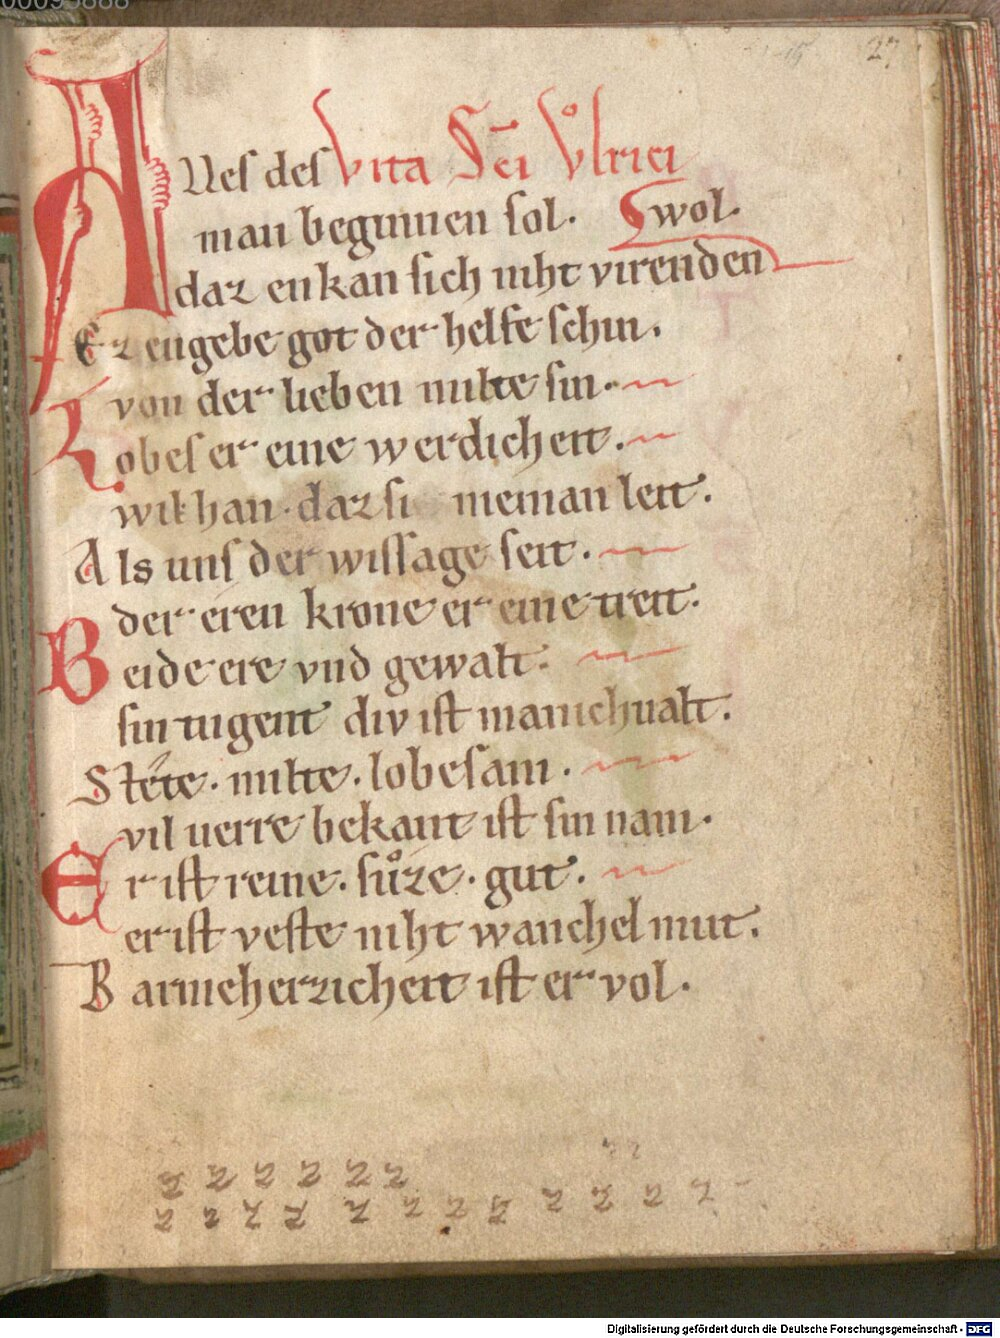 00095888
27
AUes des Vita Sci̅ Vͦlrici
man beginnen sol. wol.
daz enkan sich niht virenden
Ez engebe got der helfe schin.
von der lieben milte sin.
Lobes er eine werdicheit.
wil han. daz si nieman leit.
Als uns der wissage seit.
der eren krone er eine treit.
Beide ere vnd gewalt.
sin tugent div ist manichualt.
Stête. milte. lobesam.
vil uerre bekant ist sin nam.
Er ist reine. suͦze. gut.
er ist veste niht wanchel mut.
Barmeherzicheit ist er vol.
z z z z z z
z z z z z z z z z z z z
Digitalisierung gefördert durch die Deutsche Forschungsgemeinschaft - DFG